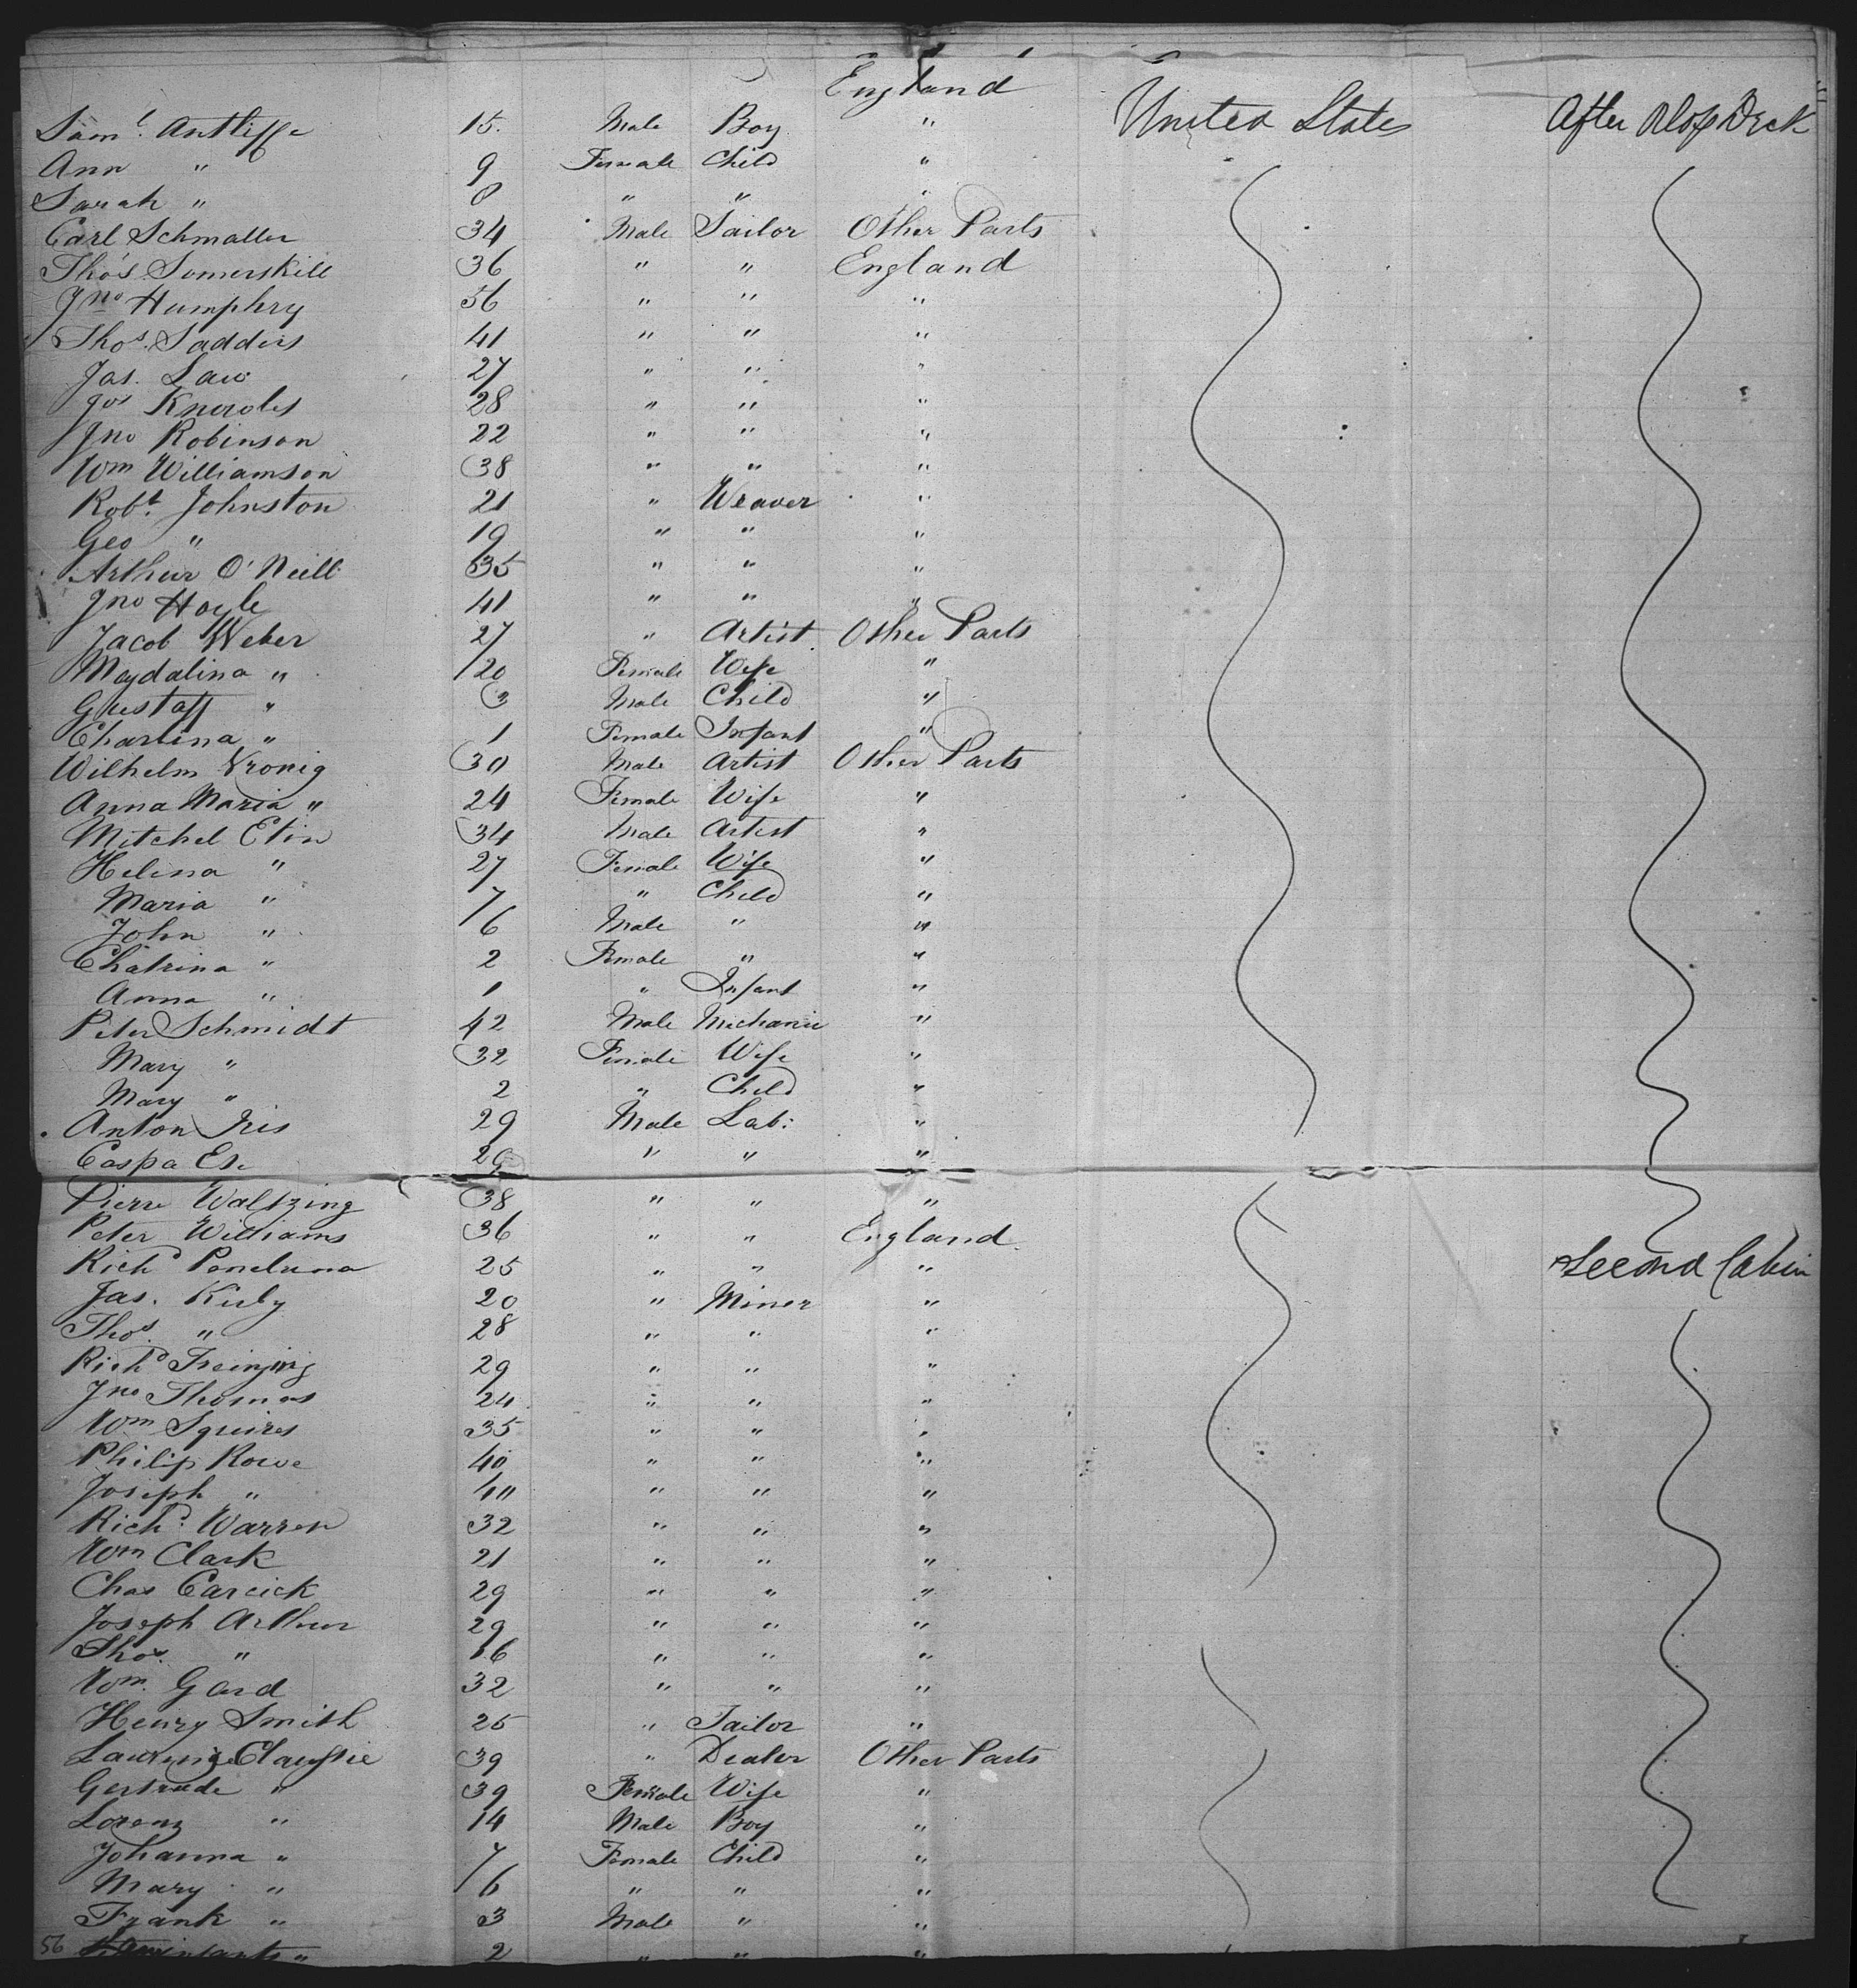 England
Sam.l Antliffe 15. Male Boy " United States After Orlop Deck
Ann " 9 Female Child "
Sarah " 8 " " "
Carl Schmaller 34 Male Tailor Other Parts
Tho's Somerskill 36 " " England
Jno Humphry 56 " " "
Thos. Sadders 41 " " "
Jas. Law 27 " " "
Jos Knowles 28 " " "
Jno Robinson 22 " " "
Wm Williamson 38 " " "
Robt. Johnston 21 " Weaver "
Geo " 19 " " "
Arthur O'Neill 35 " " "
Jno Hoyle 41 " " "
Jacob Weber 27 " Artist Other Parts
Magdalina " 20 Female Wife "
Gustaff " 3 Male Child "
Charlina " 1 Female Infant "
Wilhelm Kronig 30 Male Artist Other Parts
Anna Maria " 24 Female Wife "
Mitchel Etin 34 Male Artist "
Helena " 27 Female Wife "
Maria " 7 " Child "
John " 6 Male " "
Chatrina " 2 Female " "
Anna " 1 " Infant "
Peter Schmidt 42 Male Mechanic "
Mary " 32 Female Wife "
Mary " 2 " Child "
Anton Iris 29 Male Lab: "
Caspa 29 " " "
Pierre Waltzing 38 " " "
Peter Williams 36 " " England
Richd Peneluna 25 " " " Second Cabin
Jas. Kirby 20 " Miner "
Thos. " 28 " " "
Richd 29 " " "
Jno Thomas 24 " " "
Wm Squires 35 " " "
Philip Rowe 40 " " "
Joseph " 40 " " "
Richd. Warren 32 " " "
Wm Clark 21 " " "
Chas Carcick 29 " " "
Joseph Arthur 29 " " "
Thos. " 16 " " "
Wm. Gard 32 " " "
Henry Smith 25 " Tailor "
39 " Dealer Other Parts
Gertrude " 39 Female Wife "
Lorenz " 14 Male Boy "
Johanna " 7 Female Child "
Mary " 6 " " "
Frank " 3 Male " "
56 " 2 " " "